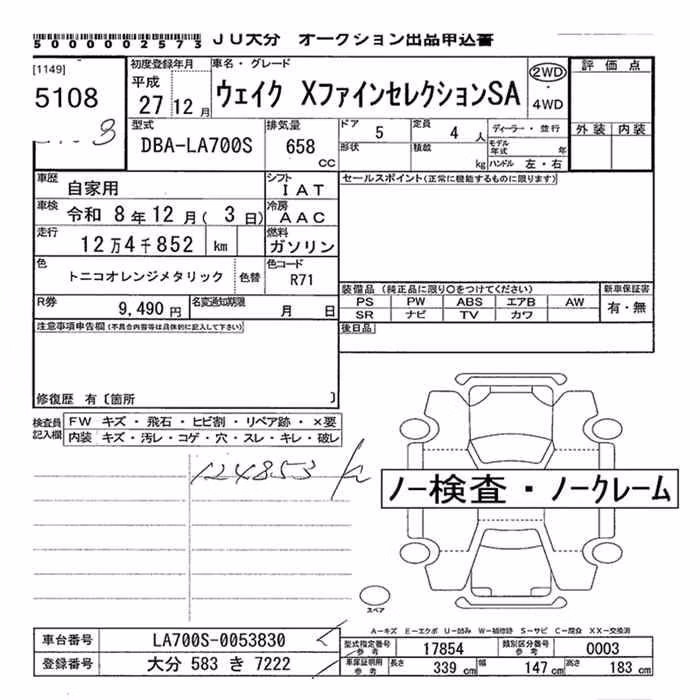 5000002573 JU大分 オークション出品申込書
[1149]
5108
初度登録年月
平成
27 12月
車名・グレード
ウェイク XファインセレクションSA
2WD
・
4WD
評価点
外装 内装
型式
DBA-LA700S
排気量
658 CC
ドア 5 定員 4 人
形状 積載 kg
ディーラー・並行
モデル年式 年
ハンドル 左・右
車歴 自家用
シフト IAT
車検 令和 8年 12月( 3日)
冷房 AAC
走行 12万4千852 km
燃料 ガソリン
色 トニコオレンジメタリック 色替
色コード R71
R券 9,490円
名変通知期限 月 日
セールスポイント(正常に機能するものに限ります)
装備品(純正品に限り○をつけてください)
新車保証書
PS PW ABS エアB AW
SR ナビ TV カワ
有・無
後日品
注意事項申告欄(不具合内容等は具体的に記入して下さい)
修復歴 有〔箇所 〕
検査員記入欄
FW キズ・飛石・ヒビ割・リペア跡・×要
内装 キズ・汚レ・コゲ・穴・スレ・キレ・破レ
124853
ノー検査・ノークレーム
スペア
A-キズ E-エクボ U-凹み W-補修跡 S-サビ C-腐食 XX-交換済
車台番号 LA700S-0053830
登録番号 大分 583 き 7222
型式指定番号 参考 17854
類別区分番号 参考 0003
車庫証明用 参考 長さ 339 cm 幅 147 cm 高さ 183 cm